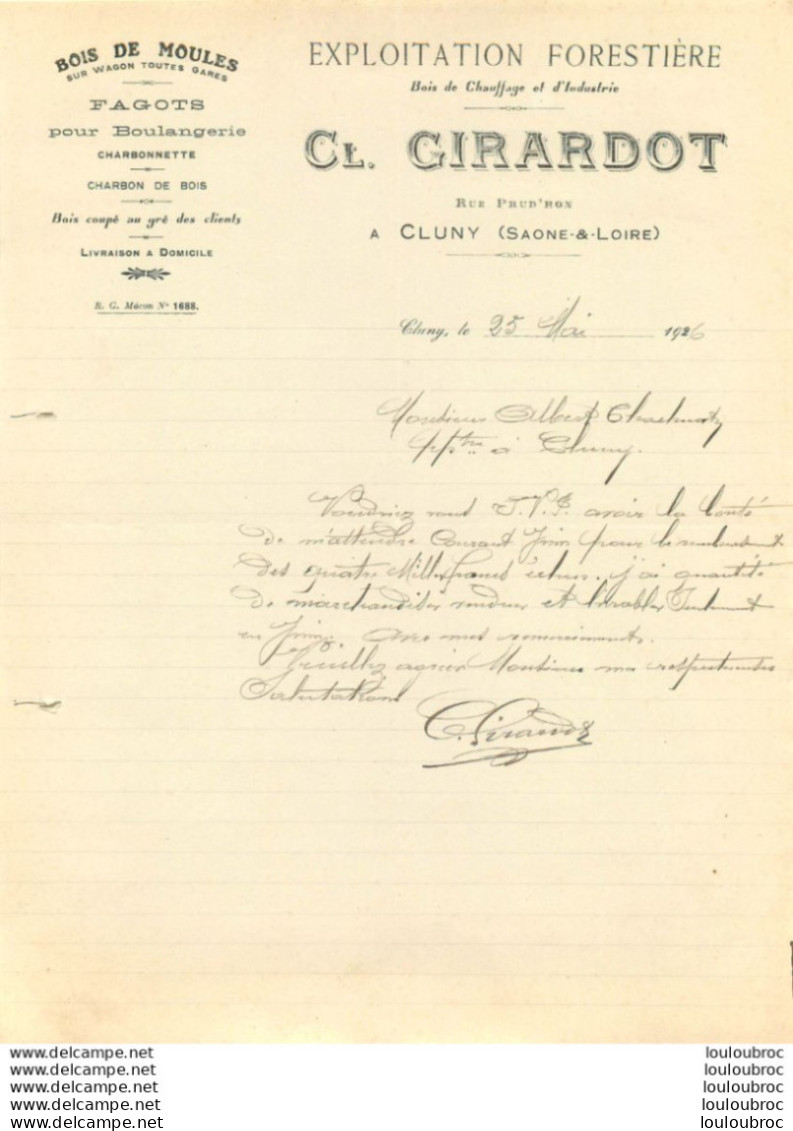 BOIS DE MOULES
SUR WAGON TOUTES GARES
FAGOTS
pour Boulangerie
CHARBONNETTE
CHARBON DE BOIS
Bois coupé au gré des clients
LIVRAISON A DOMICILE
R. C. Mâcon N° 1688.
EXPLOITATION FORESTIÈRE
Bois de Chauffage et d'Industrie
CL. GIRARDOT
RUE PRUD'HON
A CLUNY (SAONE-&-LOIRE)
Cluny, le 25 Mai 1926
Monsieur Albert
à Cluny.
Voudriez vous S.V.P. avoir la bonté
de m'attendre Courant Juin pour le
des quatre Mille francs échus. j'ai quantité
de marchandises vendues et livrables Seulement
en Juin. Avec mes remerciements.
Veuillez agréer Monsieur mes respectueuses
Salutations
C. Girardot
www.delcampe.net
www.delcampe.net
www.delcampe.net
www.delcampe.net
www.delcampe.net
louloubroc
louloubroc
louloubroc
louloubroc
louloubroc